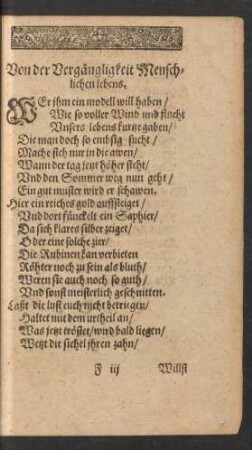 Von der Vergängligkeit Mensch-
lichen lebens.
WEr jhm ein modell will haben/
Wie so voller Wind und flucht
Vnsers lebens kurtze gaben/
Die man doch so embsig sucht/
Mache sich nur in die awen/
Wann der tag jtzt höher steht/
Vnd den Sommer weg nun geht/
Ein gut muster wird er schawen.
Hier ein reiches gold auffsteiget/
Vnd dort fünckelt ein Saphier/
Da sich klares silber zeiget/
Oder eine solche zier/
Die Rubinen kan verbieten
Röhter noch zu sein als bluth/
Weren sie auch noch so guth/
Vnd sonst meisterlich geschnitten.
Laßt die lust euch nicht betriegen/
Haltet mit dem urtheil an/
Was jetzt tröstet/wird bald liegen/
Wetzt die sichel jhren zahn/
F iij Willst